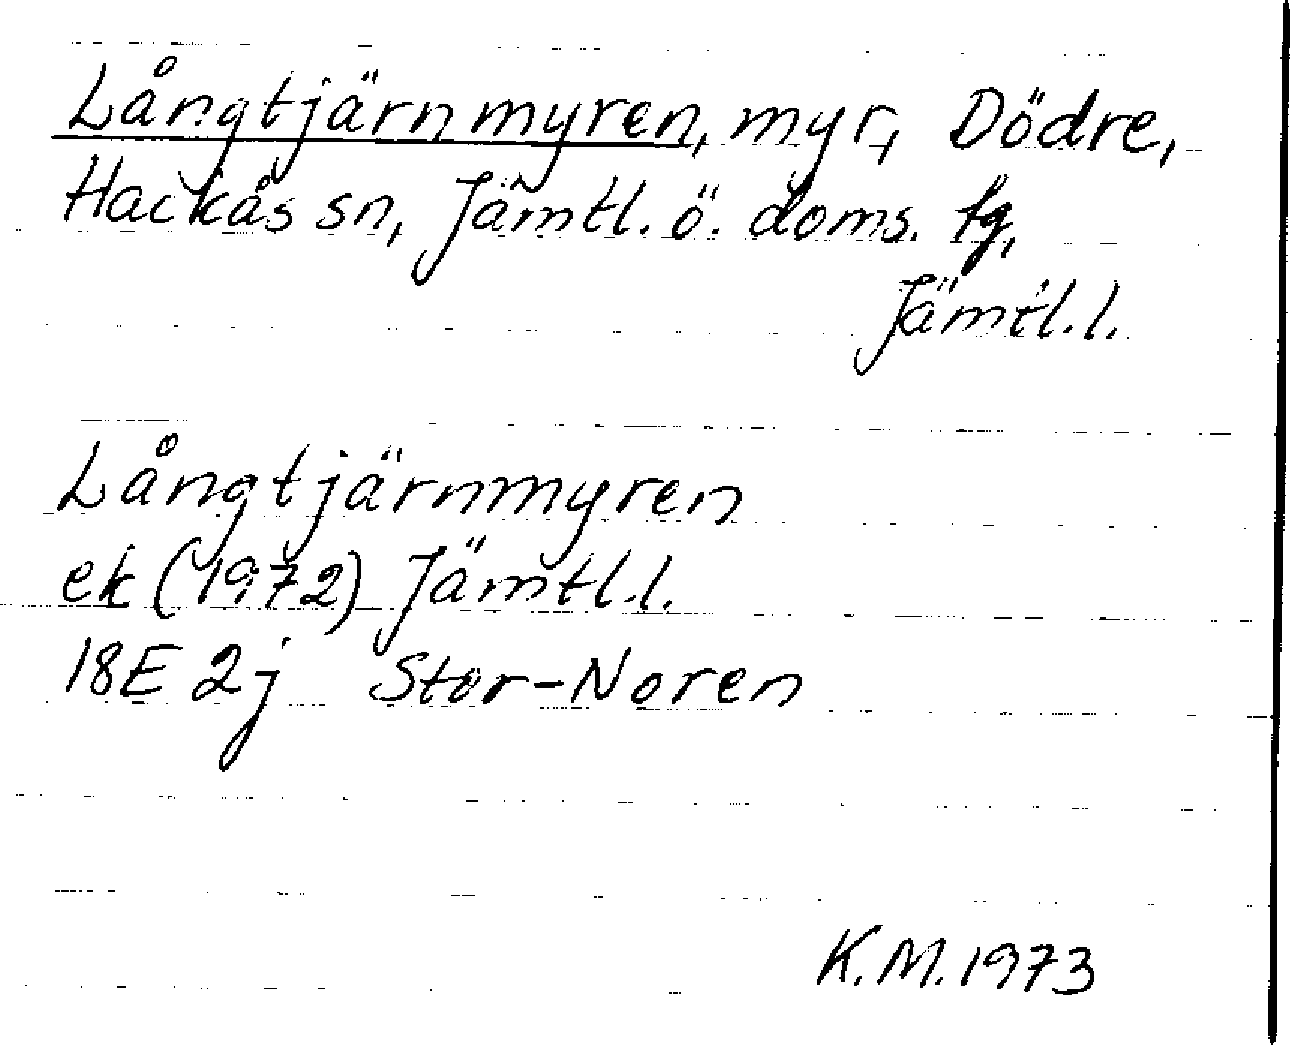 Långtjärnmyren, myr, Dödre,
Hackås sn, Jämtl. ö. doms. tg,
Jämtl. l.
Långtjärnmyren
ek (1972) Jämtl. l.
18E 2j Stor-Noren
K.M. 1973